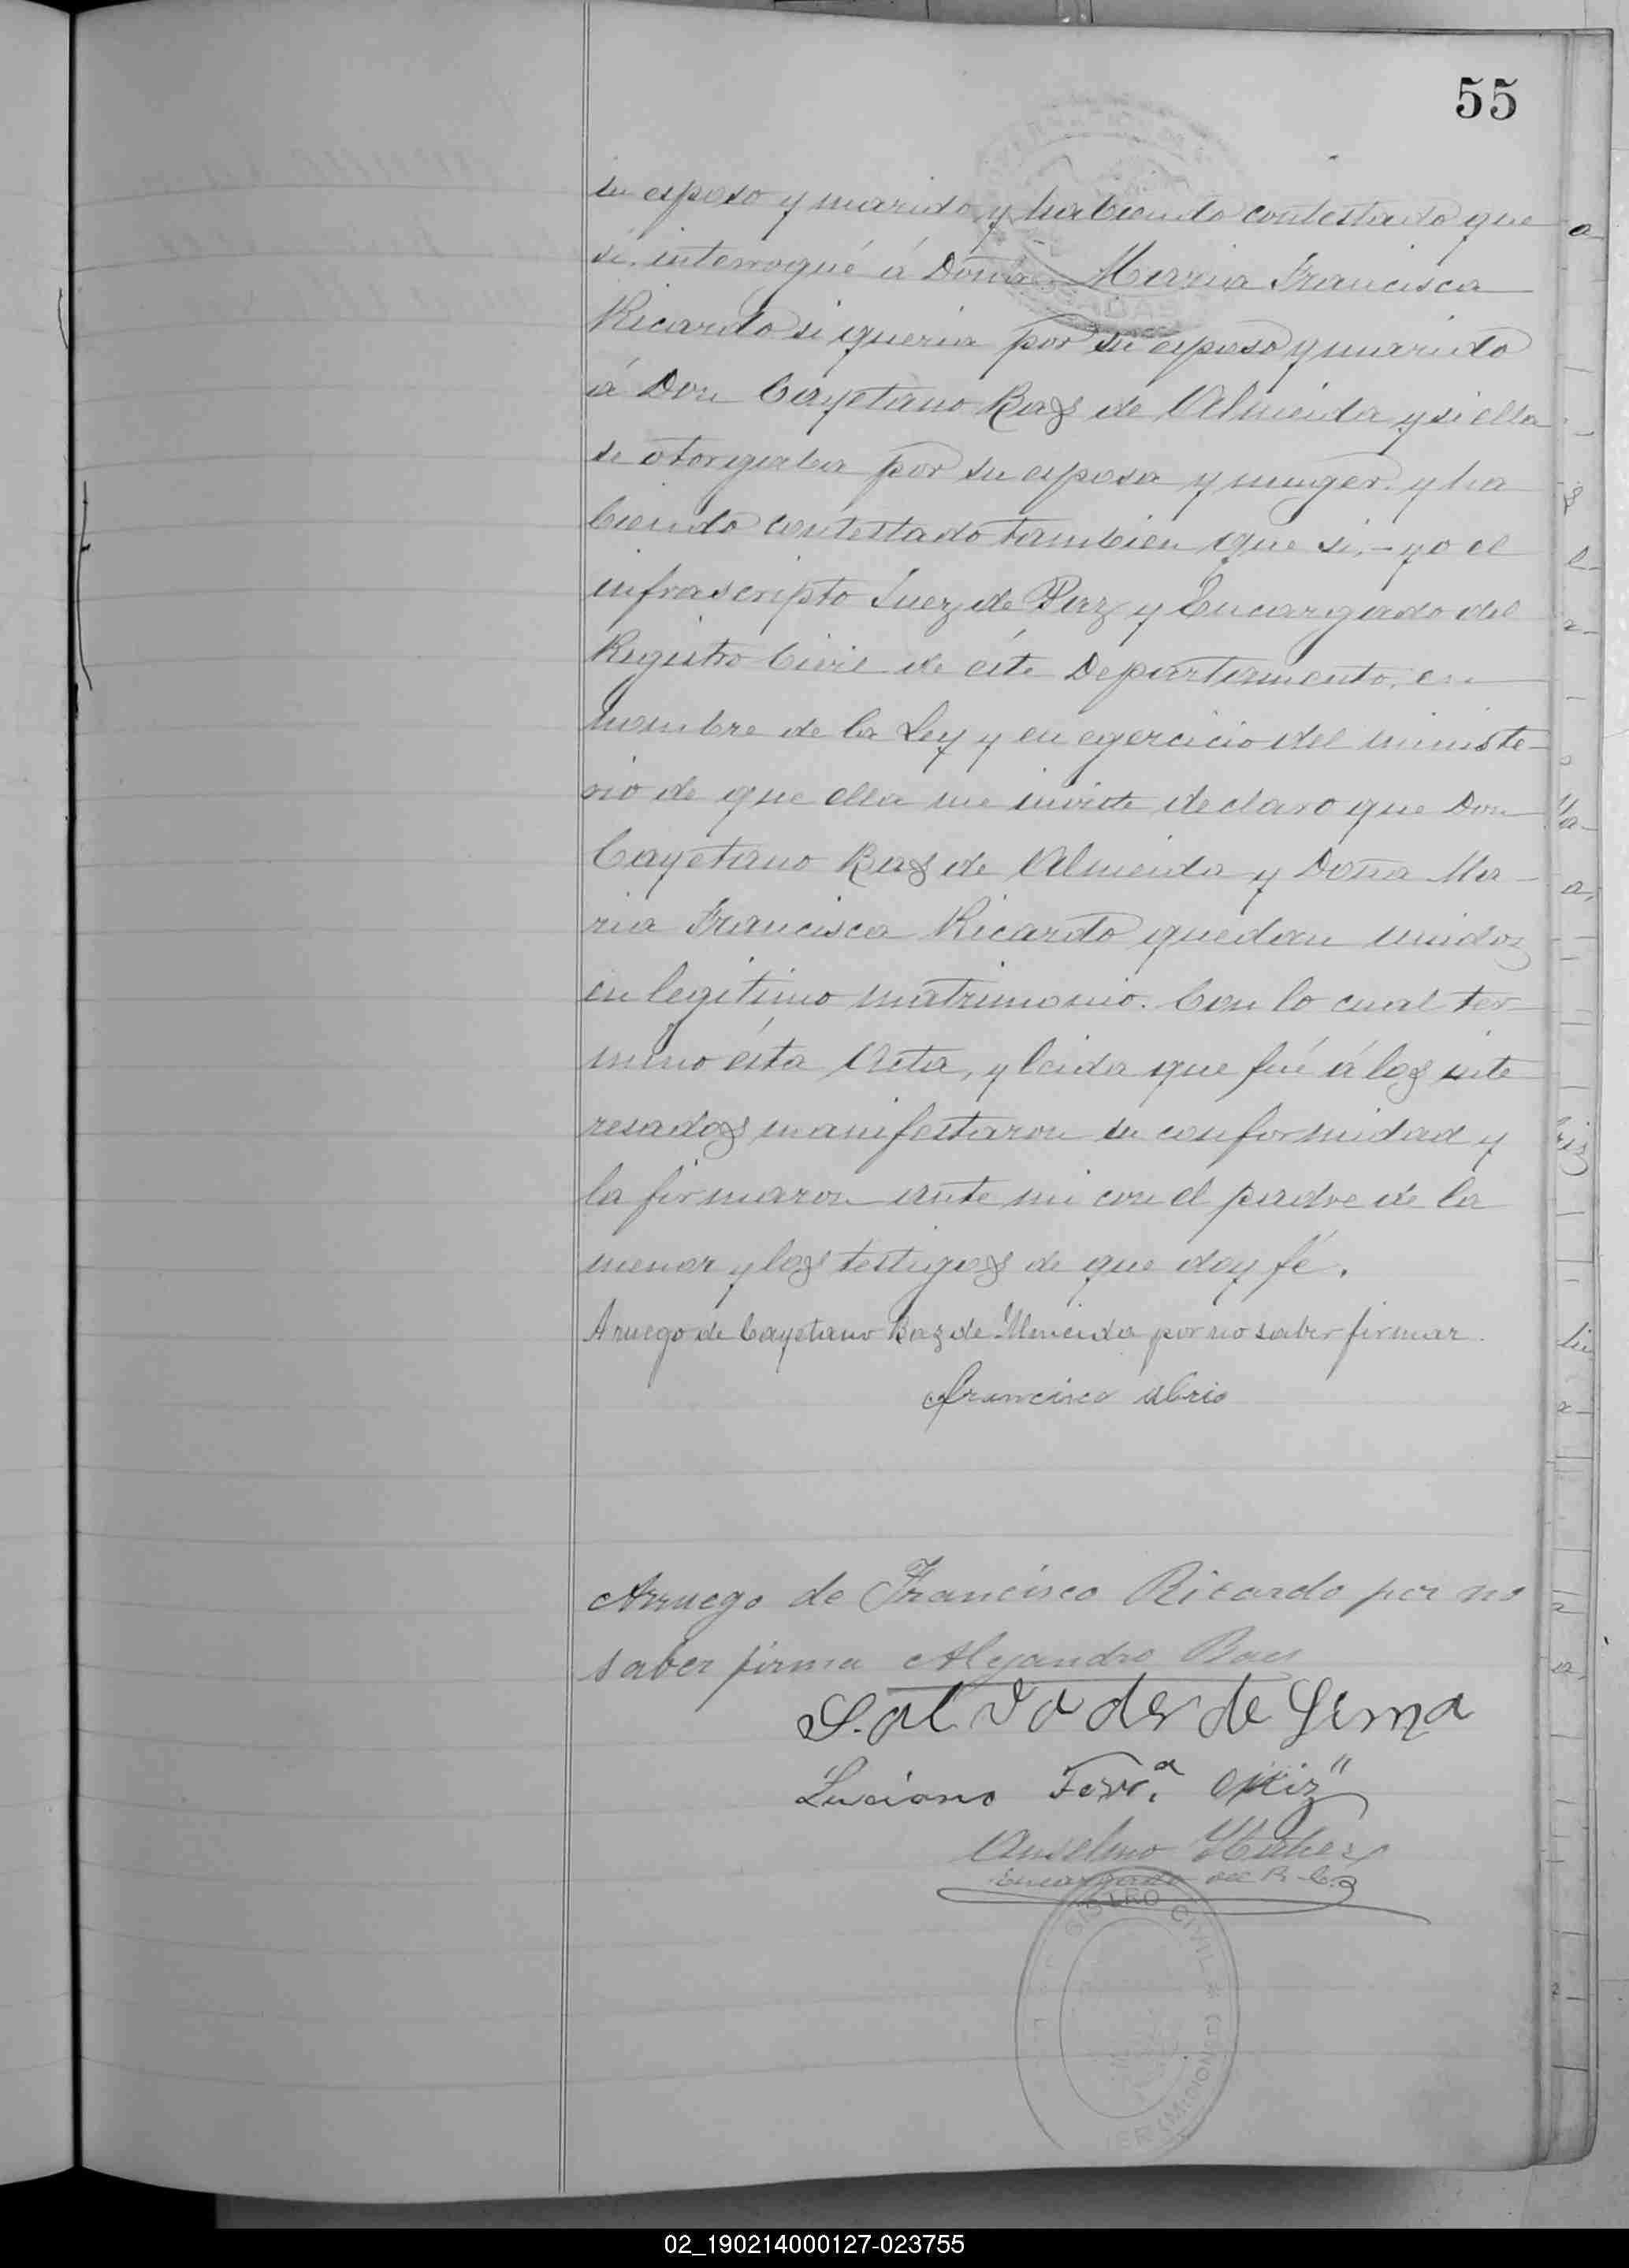 55
su esposo y marido, y habiendo contestado que
si, interrogué á Doña Maria Francisca
Ricardo si queria por su esposo y marido
á Don Cayetano Bas de Almeida y si ella
se otorgaba por su esposa y muger, y ha
biendo contestado tambien que si, - yo el
infrascripto Juez de Paz y Encargado del
Registro Civil de éste Departamento, en
nombre de la Ley y en egercicio del ministe-
rio de que ella me inviste declaro que Don
Cayetano Bas de Almeida y Doña Ma-
ria Francisca Ricardo quedan unidos
en legitimo matrimonio. Con lo cual ter
minó ésta Acta, y leida que fué á los inte
resados manifestaron su conformidad y
la firmaron ante mi con el padre de la
menor y los testigos de que doy fé.
A ruego de Cayetano Baz de Almeida por no saber firmar.
Francisco
Arruego de Francisco Ricardo por no
saber firma Alejandro Baes
Salvador de Lima
Luciano Ferr.ª
Anselmo
Encargado del R. C.
REGISTRO CIVIL * (MISIONES)
02_190214000127-023755